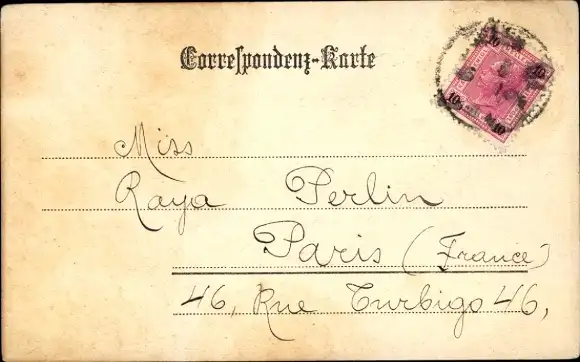 Correspondenz-Karte
10 10
10 10
Miss
Raya Perlin
Paris (France)
46, Rue Turbigo 46,